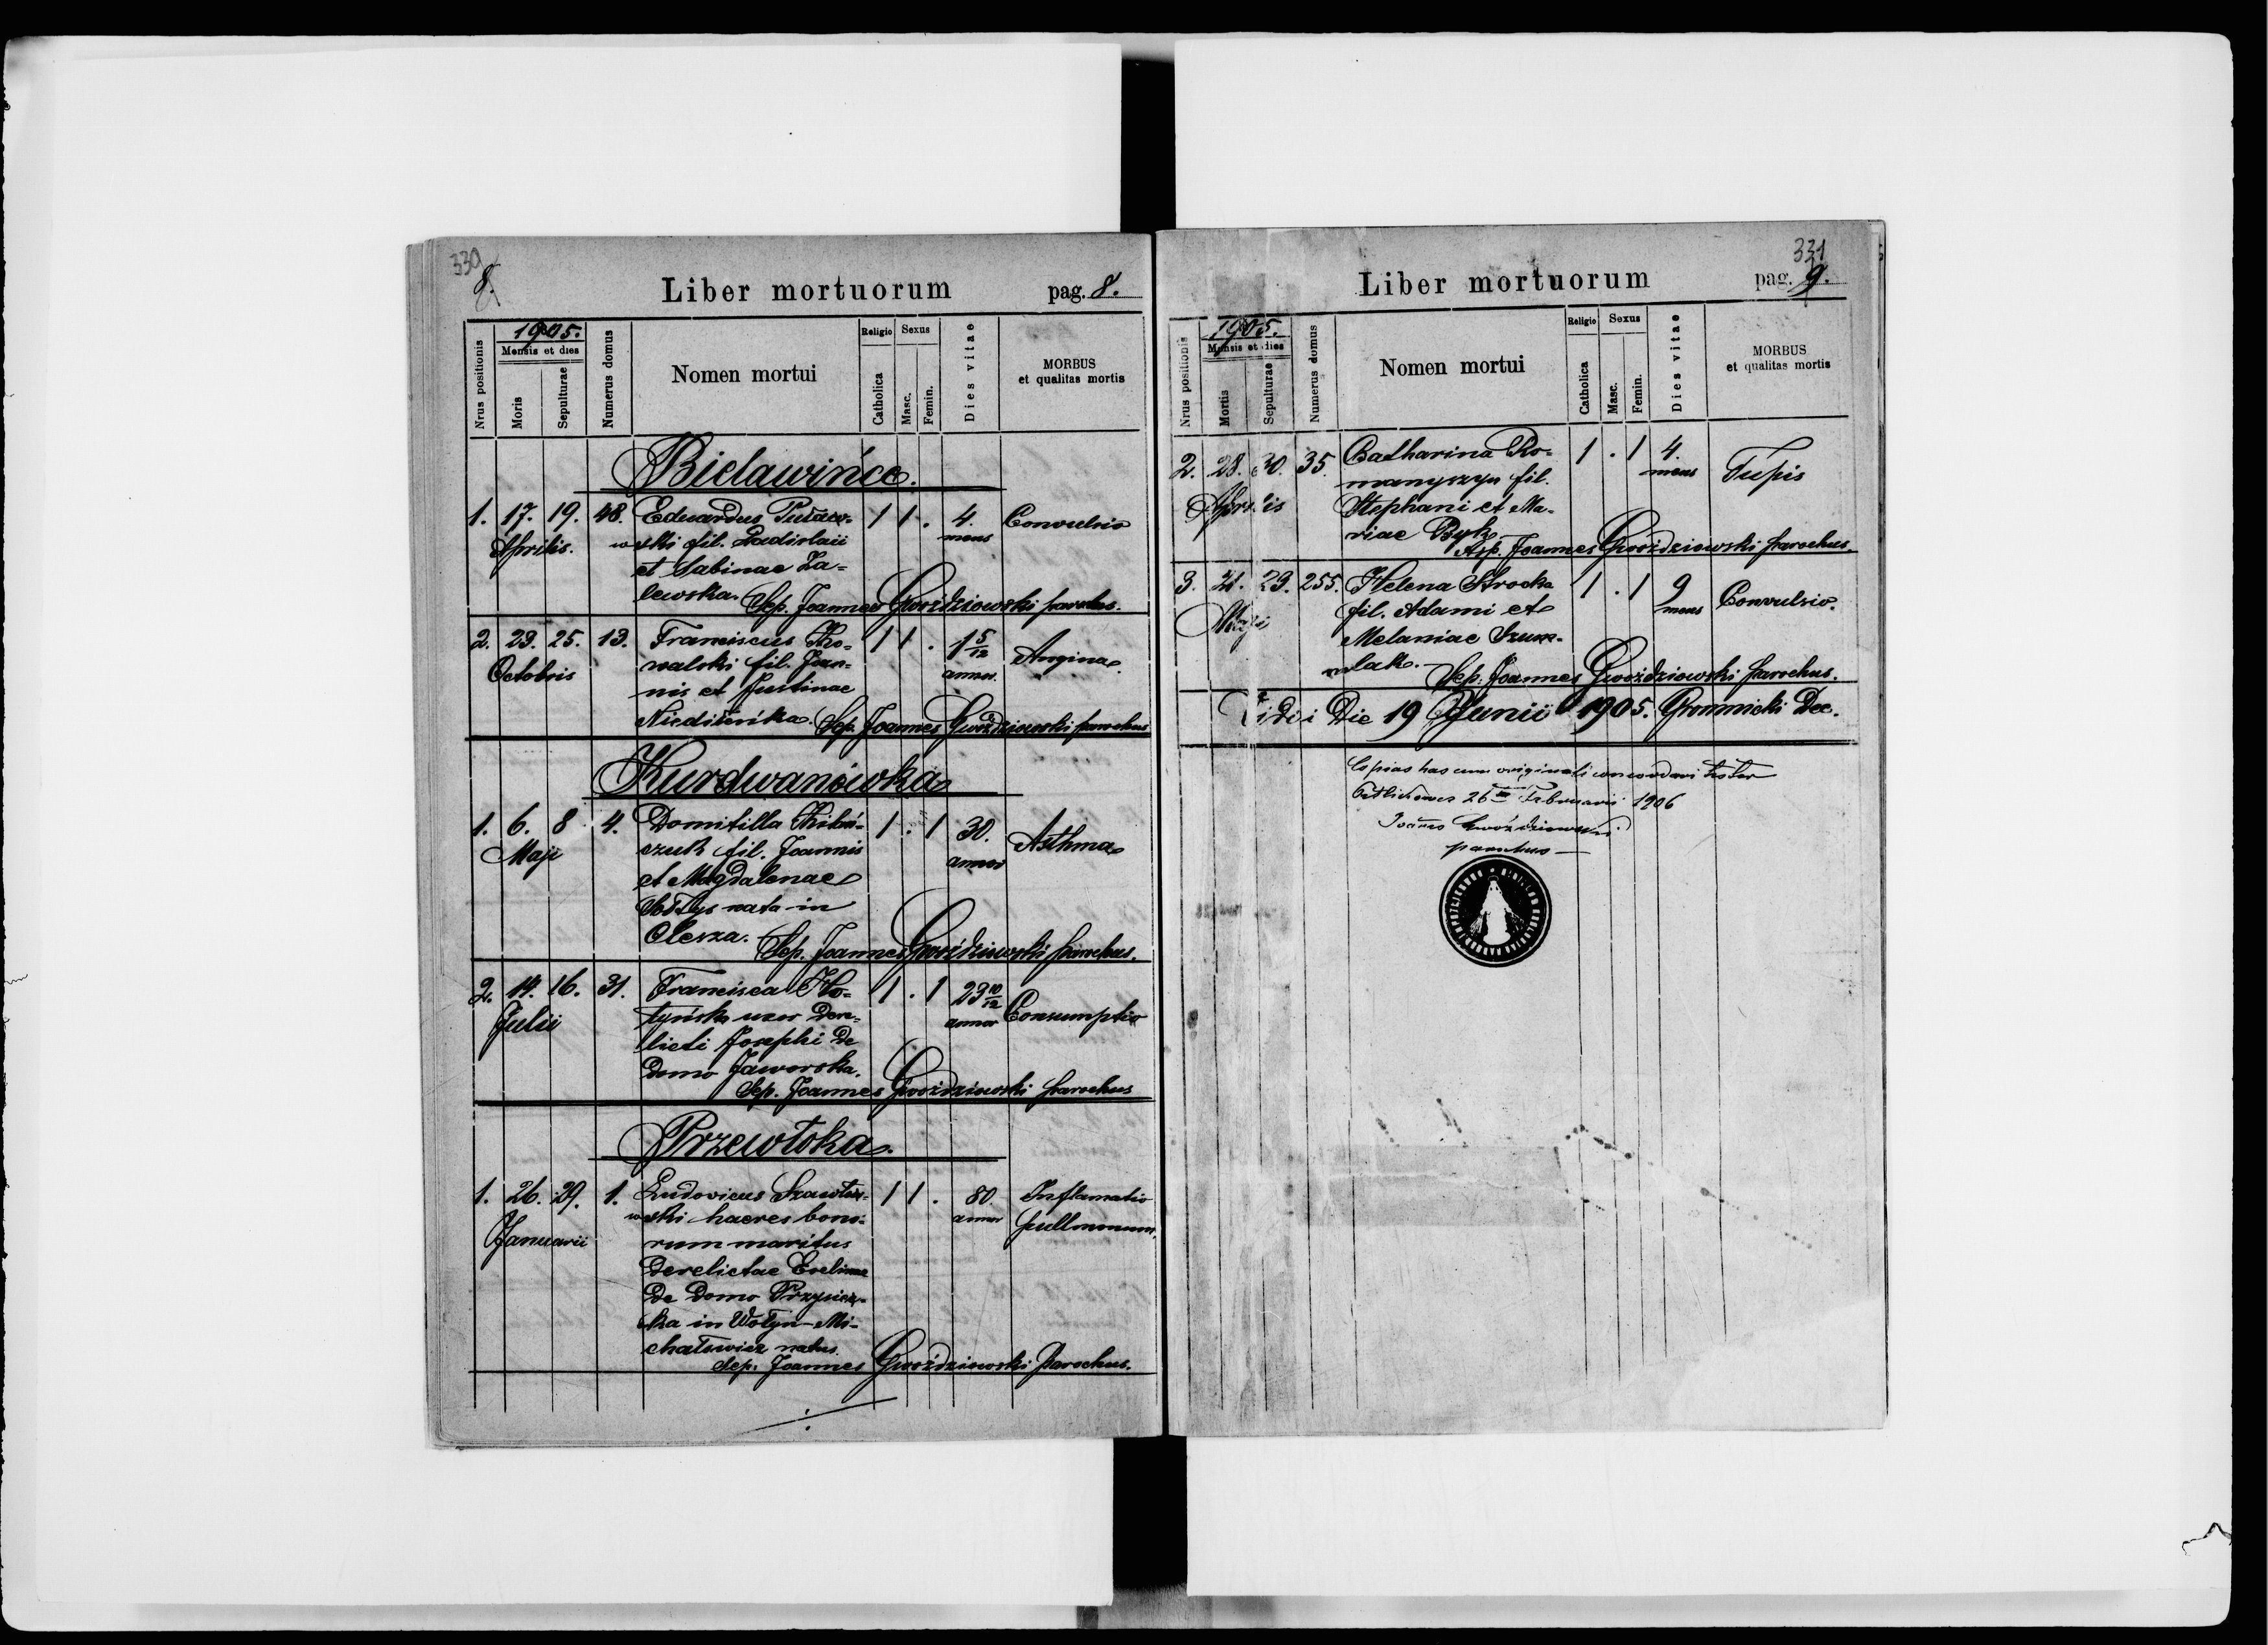 330
8.
Liber mortuorum pag. 8.
Nrus positionis
1905.
Mensis et dies
Moris
Sepulturae
Numerus domus
Nomen mortui
Religio
Catholica
Sexus
Masc.
Femin.
Dies vitae
MORBUS
et qualitas mortis
Bielawińce.
1. 17. 19. 48. Eduardus 1 1 . 4. Convulsio
Aprilis. wski fil. Ladislaii mens
et Sabinae Za-
lewska. Sep. Joannes Gwoździowski parochus.
2. 23. 25. 13. Franciscus Ko- 1 1 . 1 5/12 Angina
Octobris walski fil. Joan- annor.
nis et Justinae
Sep. Joannes Gwoździowski parochus
Kurdwanówka
1. 6. 8 4. Domitilla 1 . 1 30. Asthma
Maji czuk fil. Joannis annor
et Magdalenae
Sołtys nata in
Olesza. Sep. Joannes Gwoździowski parochus.
2. 14. 16. 31. Francisca Ho- 1 . 1 23 10/12 Consumptio
Julii tyńska uxor Dere- annor
licti Josephi De
Domo Jaworska.
Sep. Joannes Gwoździowski parochus
Przewłoka.
1. 26. 29. 1. Ludovicus 1 1 . 80. Inflamatio
Januarii wski haeres bono- annor pullmonum.
rum maritus
Derelictae Evelinae
De Domo
ka in Wołyn-Mi-
chałowicz natus.
Sep: Joannes Gwoździowski Parochus.
331
Liber mortuorum pag. 9.
Nrus positionis
1905.
Mensis et dies
Mortis
Sepulturae
Numerus domus
Nomen mortui
Religio
Catholica
Sexus
Masc.
Femin.
Dies vitae
MORBUS
et qualitas mortis
2. 28. 30. 35. Catharina Ro- 1 . 1 4. Tupis
Aprilis manyszyn fil. mens
Stephani et Ma-
riae Byk
Sep. Joannes Gwoździowski parochus.
3. 21. 23. 255. Helena Sroka 1 . 1 9 Convulsio.
Maji fil. Adami et mens
Melaniae Szum-
lak. Sep: Joannes Gwoździowski parochus.
Vidi Die 19 Junii 1905. Gromnicki Dec.
Copias has cum originali concordari testor
Petlikowce 26 Februarii 1906
Joannes Gwoździowski
parochus